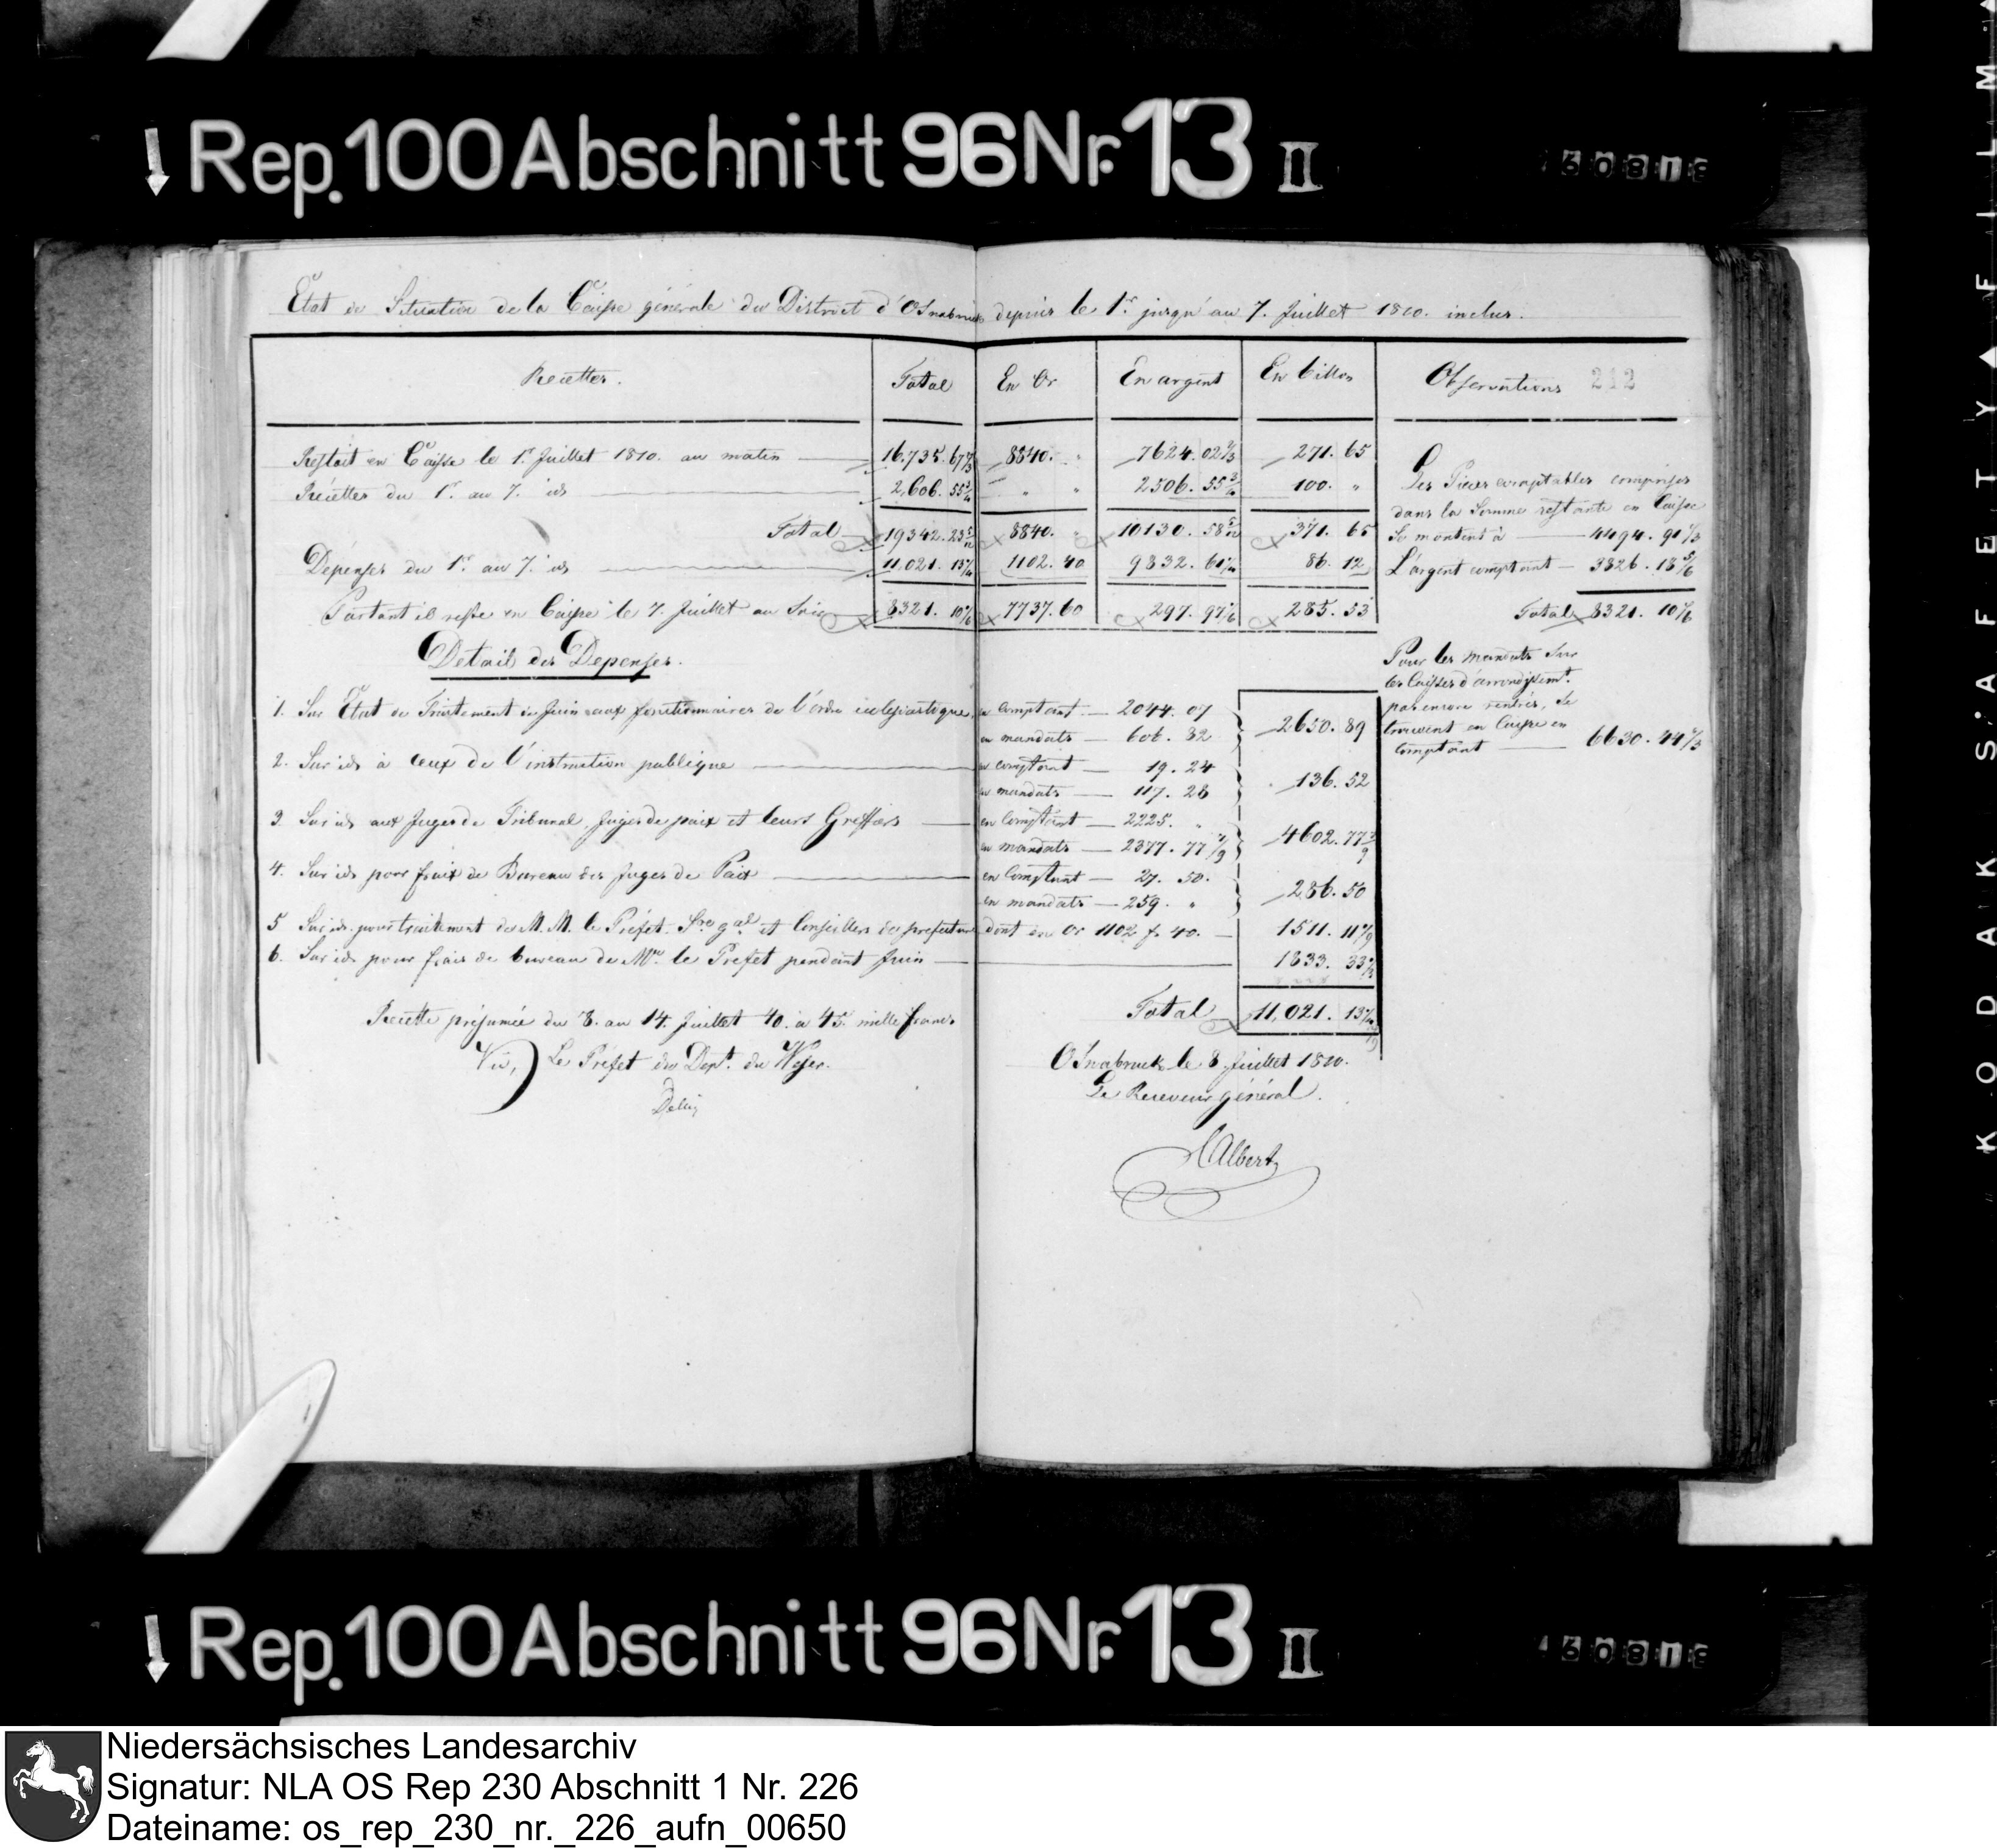 Rep. 100 Abschnitt 96 Nr. 13 II
Etat de Situation de la Caisse générale du District d'Osnabruck depuis le 1r. jusqu'au 7. Juillet 1810. inclus.
Recettes. Total En Or En argent En billon Observations 212
Restoit en Caisse le 1r. Juillet 1810. au matin 16.735. 67 2/3 8840. " 7624. 02 2/3 271. 65
Récettes du 1r. au 7. id. 2,606. 55 3/4 " " 2506. 55 3/4 100. "
Total 19342. 23 5/12 8840. " 10130. 58 5/12 371. 65
Dépenses du 1r. au 7. id. 11,021. 13 1/4 1102. 40 9832. 61 1/4 86. 12
Partant il reste en Caisse le 7. Juillet au Soir 8321. 10 1/6 7737. 60 297. 97 1/6 285. 53
Les Pieces comptables comprises
dans la Somme restante en Caisse
Se montent à 4494. 91 1/3
L'argent comptant 3826. 18 5/6
Total 8321. 10 1/6
Pour les mandats Sur
les Caisses d'arrondissemt.
pas encore rentrés, Se
trouvent en Caisse en
Comptant 6630. 44 2/3
Detail des Depenses.
1. Sur Etat de Traitement de Juin aux fonctionnaires de l'ordre ecclesiastique, en comptant 2044. 07
en mandats 606. 82 2650. 89
2. Sur id. à ceux de l'instruction publique en comptant 19. 24
en mandats 117. 28 136. 52
3 Sur id. aux Juges de Tribunal, Juges de paix et leurs Greffiers en comptant 2225. "
en mandats 2377. 77 7/9 4602. 77 7/9
4. Sur id. pour fraix de Bureau des Juges de Paix en Comptant 27. 50.
en mandats 259. " 286. 50
5 Sur id. pour traitement de M.M. le Préfet Sre. gal. et Conseillers de prefecture dont en Or 1102 f. 40. 1511. 11 1/9
6. Sur id. pour frais de bureau de Mr. le Prefet pendant Juin 1833. 33 1/3
Total 11,021. 13
Recette présumée du 8. au 14. Juillet 40. à 45. mille francs
Vu, Le Préfet du Dept. du Weser.
Osnabruck le 8 Juillet 1810.
Le Receveur général.
Albert
Rep. 100 Abschnitt 96 Nr. 13 II
KODAK SAFETY FILM
Niedersächsisches Landesarchiv
Signatur: NLA OS Rep 230 Abschnitt 1 Nr. 226
Dateiname: os_rep_230_nr._226_aufn_00650